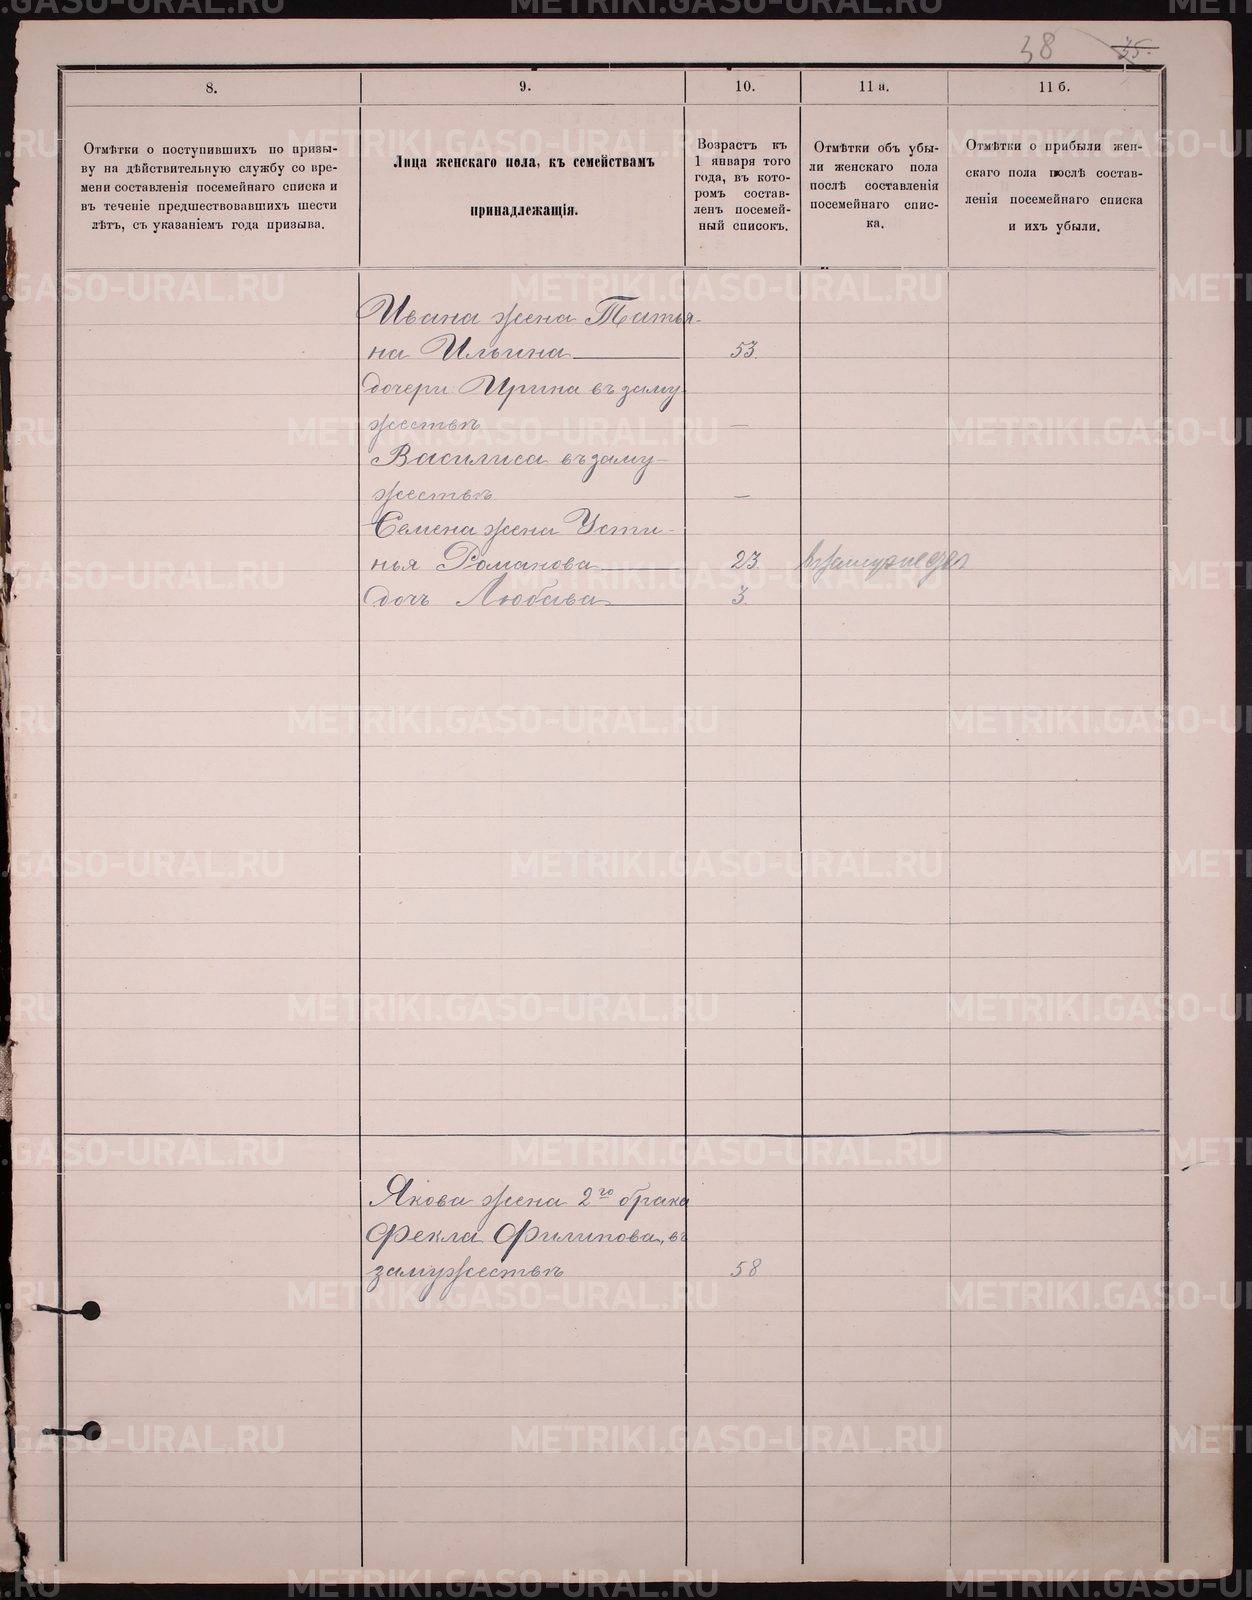 38 35.
8. 9. 10. 11 а. 11 б.
Отмѣтки о поступившихъ по призы-
ву на дѣйствительную службу со вре-
мени составленія посемейнаго списка и
въ теченіе предшествовавшихъ шести
лѣтъ, съ указаніемъ года призыва.
Лица женскаго пола, къ семействамъ
принадлежащія.
Возрастъ къ
1 января того
года, въ кото-
ромъ состав-
ленъ посемей-
ный списокъ.
Отмѣтки объ убы-
ли женскаго пола
послѣ составленія
посемейнаго спис-
ка.
Отмѣтки о прибыли жен-
скаго пола послѣ состав-
ленія посемейнаго списка
и ихъ убыли.
Ивана жена Татья-
на Ильина 53.
дочери: Ирина въ заму-
жествѣ —
Василиса въ заму-
жествѣ —
Семена жена Усти-
нья Романова 23. въ замужествѣ
дочь Любава 3.
Якова жена 2го брака
Фекла Филипова, въ
замужествѣ 58
METRIKI.GASO-URAL.RU